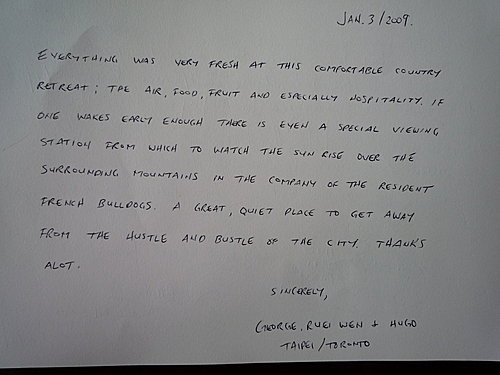 JAN. 3/2009.
EVERYTHING WAS VERY FRESH AT THIS COMFORTABLE COUNTRY
RETREAT; THE AIR, FOOD, FRUIT AND ESPECIALLY HOSPITALITY. IF
ONE WAKES EARLY ENOUGH THERE IS EVEN A SPECIAL VIEWING
STATION FROM WHICH TO WATCH THE SUN RISE OVER THE
SURROUNDING MOUNTAINS IN THE COMPANY OF THE RESIDENT
FRENCH BULLDOGS. A GREAT, QUIET PLACE TO GET AWAY
FROM THE HUSTLE AND BUSTLE OF THE CITY. THANKS
ALOT.
SINCERELY,
GEORGE, RUEI WEN + HUGO
TAIPEI/TORONTO